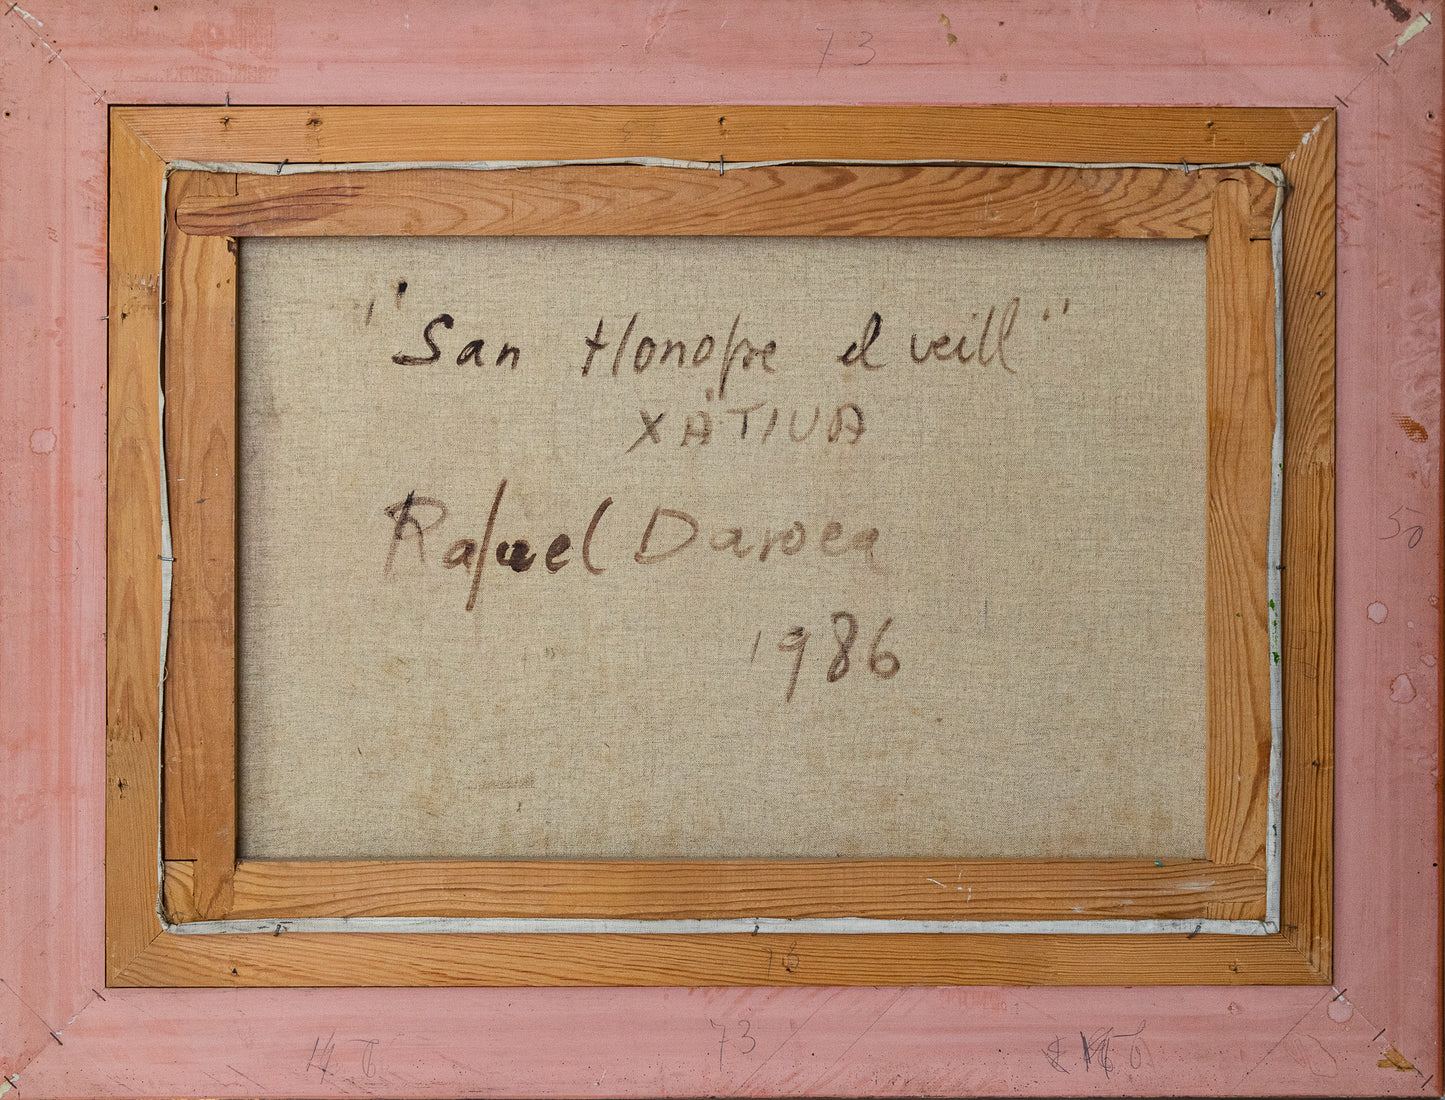 73
"San Honofre el veill"
XÀTIVA
Rafael Daroca
1986
50
73